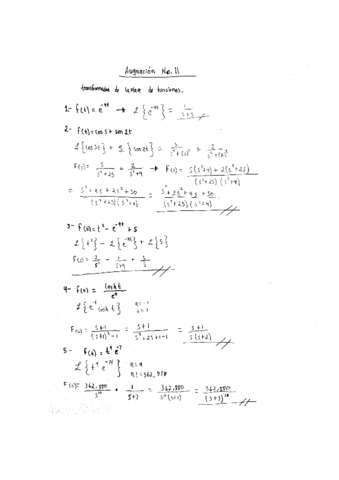 Asignación No. 11
transformada de Laplace de funciones.
1- F(t) = e^-9t → L{e^-9t} = 1/(s+9)
2- F(t) = cos 5t + sen 2t
L{cos 5t} + L{sen 2t} = s/(s²+(5)²) + 2/(s²+(2)²)
F(s) = s/(s²+25) + 2/(s²+4) → F(s) = (s(s²+4) + 2(s²+25))/((s²+25)(s²+4))
= (s³+4s+2s²+50)/((s²+25)(s²+4)) = (s³+2s²+4s+50)/((s²+25)(s²+4))
3- F(t) = t² - e^-9t + 5
L{t²} - L{e^-9t} + L{5}
F(s) = 2/s³ - 1/(s+9) + 5/s
4- F(t) = cosh t/e^t
L{e^-t cosh t}
F(s) = (s+1)/((s+1)²-1) = (s+1)/(s²+2s+1-1) = (s+1)/(s(s+2))
5- F(t) = t⁹ e
L{t⁹ e} n=9
n! = 362,880
F(s) = 362,880/s¹⁰ · 1/ = 362,880/ = 362,880/